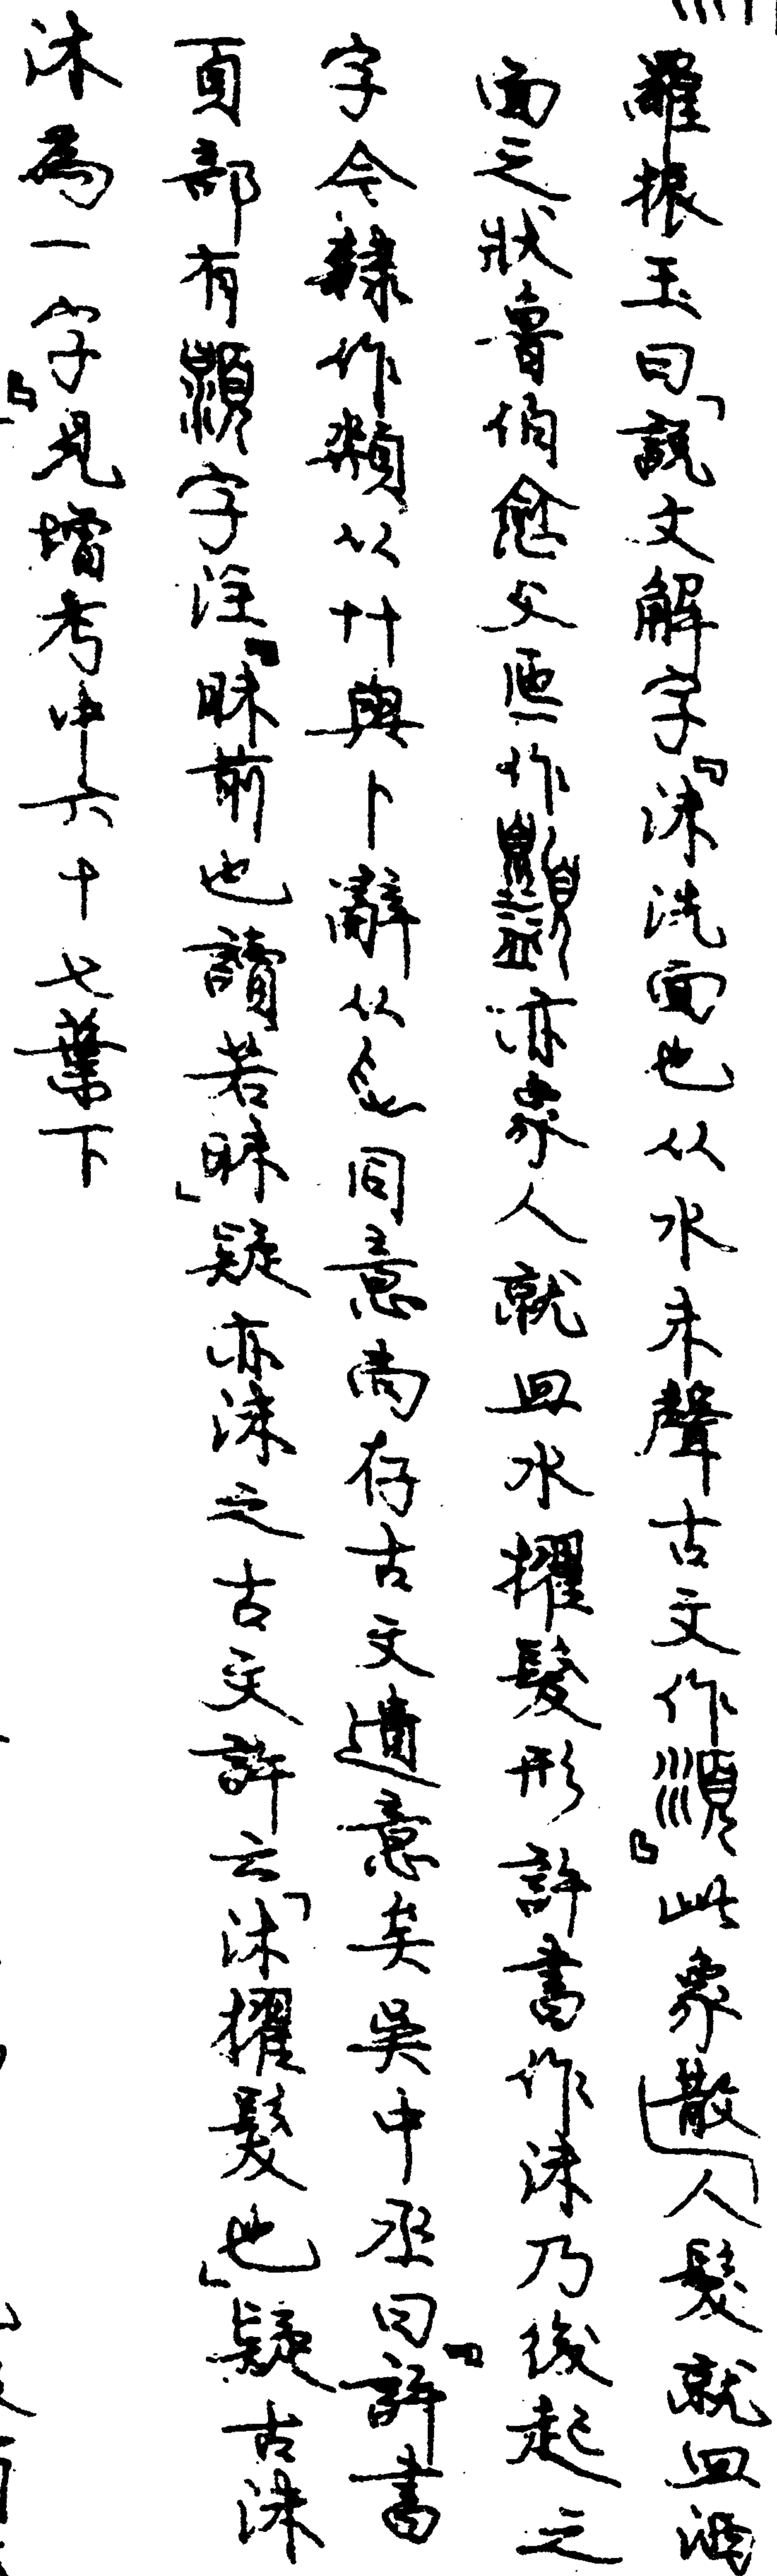 羅振玉曰「說文解字『沬洗面也从水未聲古文作湏』此象散人髮就皿洒
面之狀魯伯愈父匜作亦象人就皿水擢髮形許書作沬乃後起之
字今隸作頮从廾與卜辭从同意尚存古文遺意矣吳中丞曰『許書
頁部有字注「昧前也讀若昧」疑亦沬之古文許云「沐擢髮也」疑古沬
沐為一字』見增考中六十七葉下